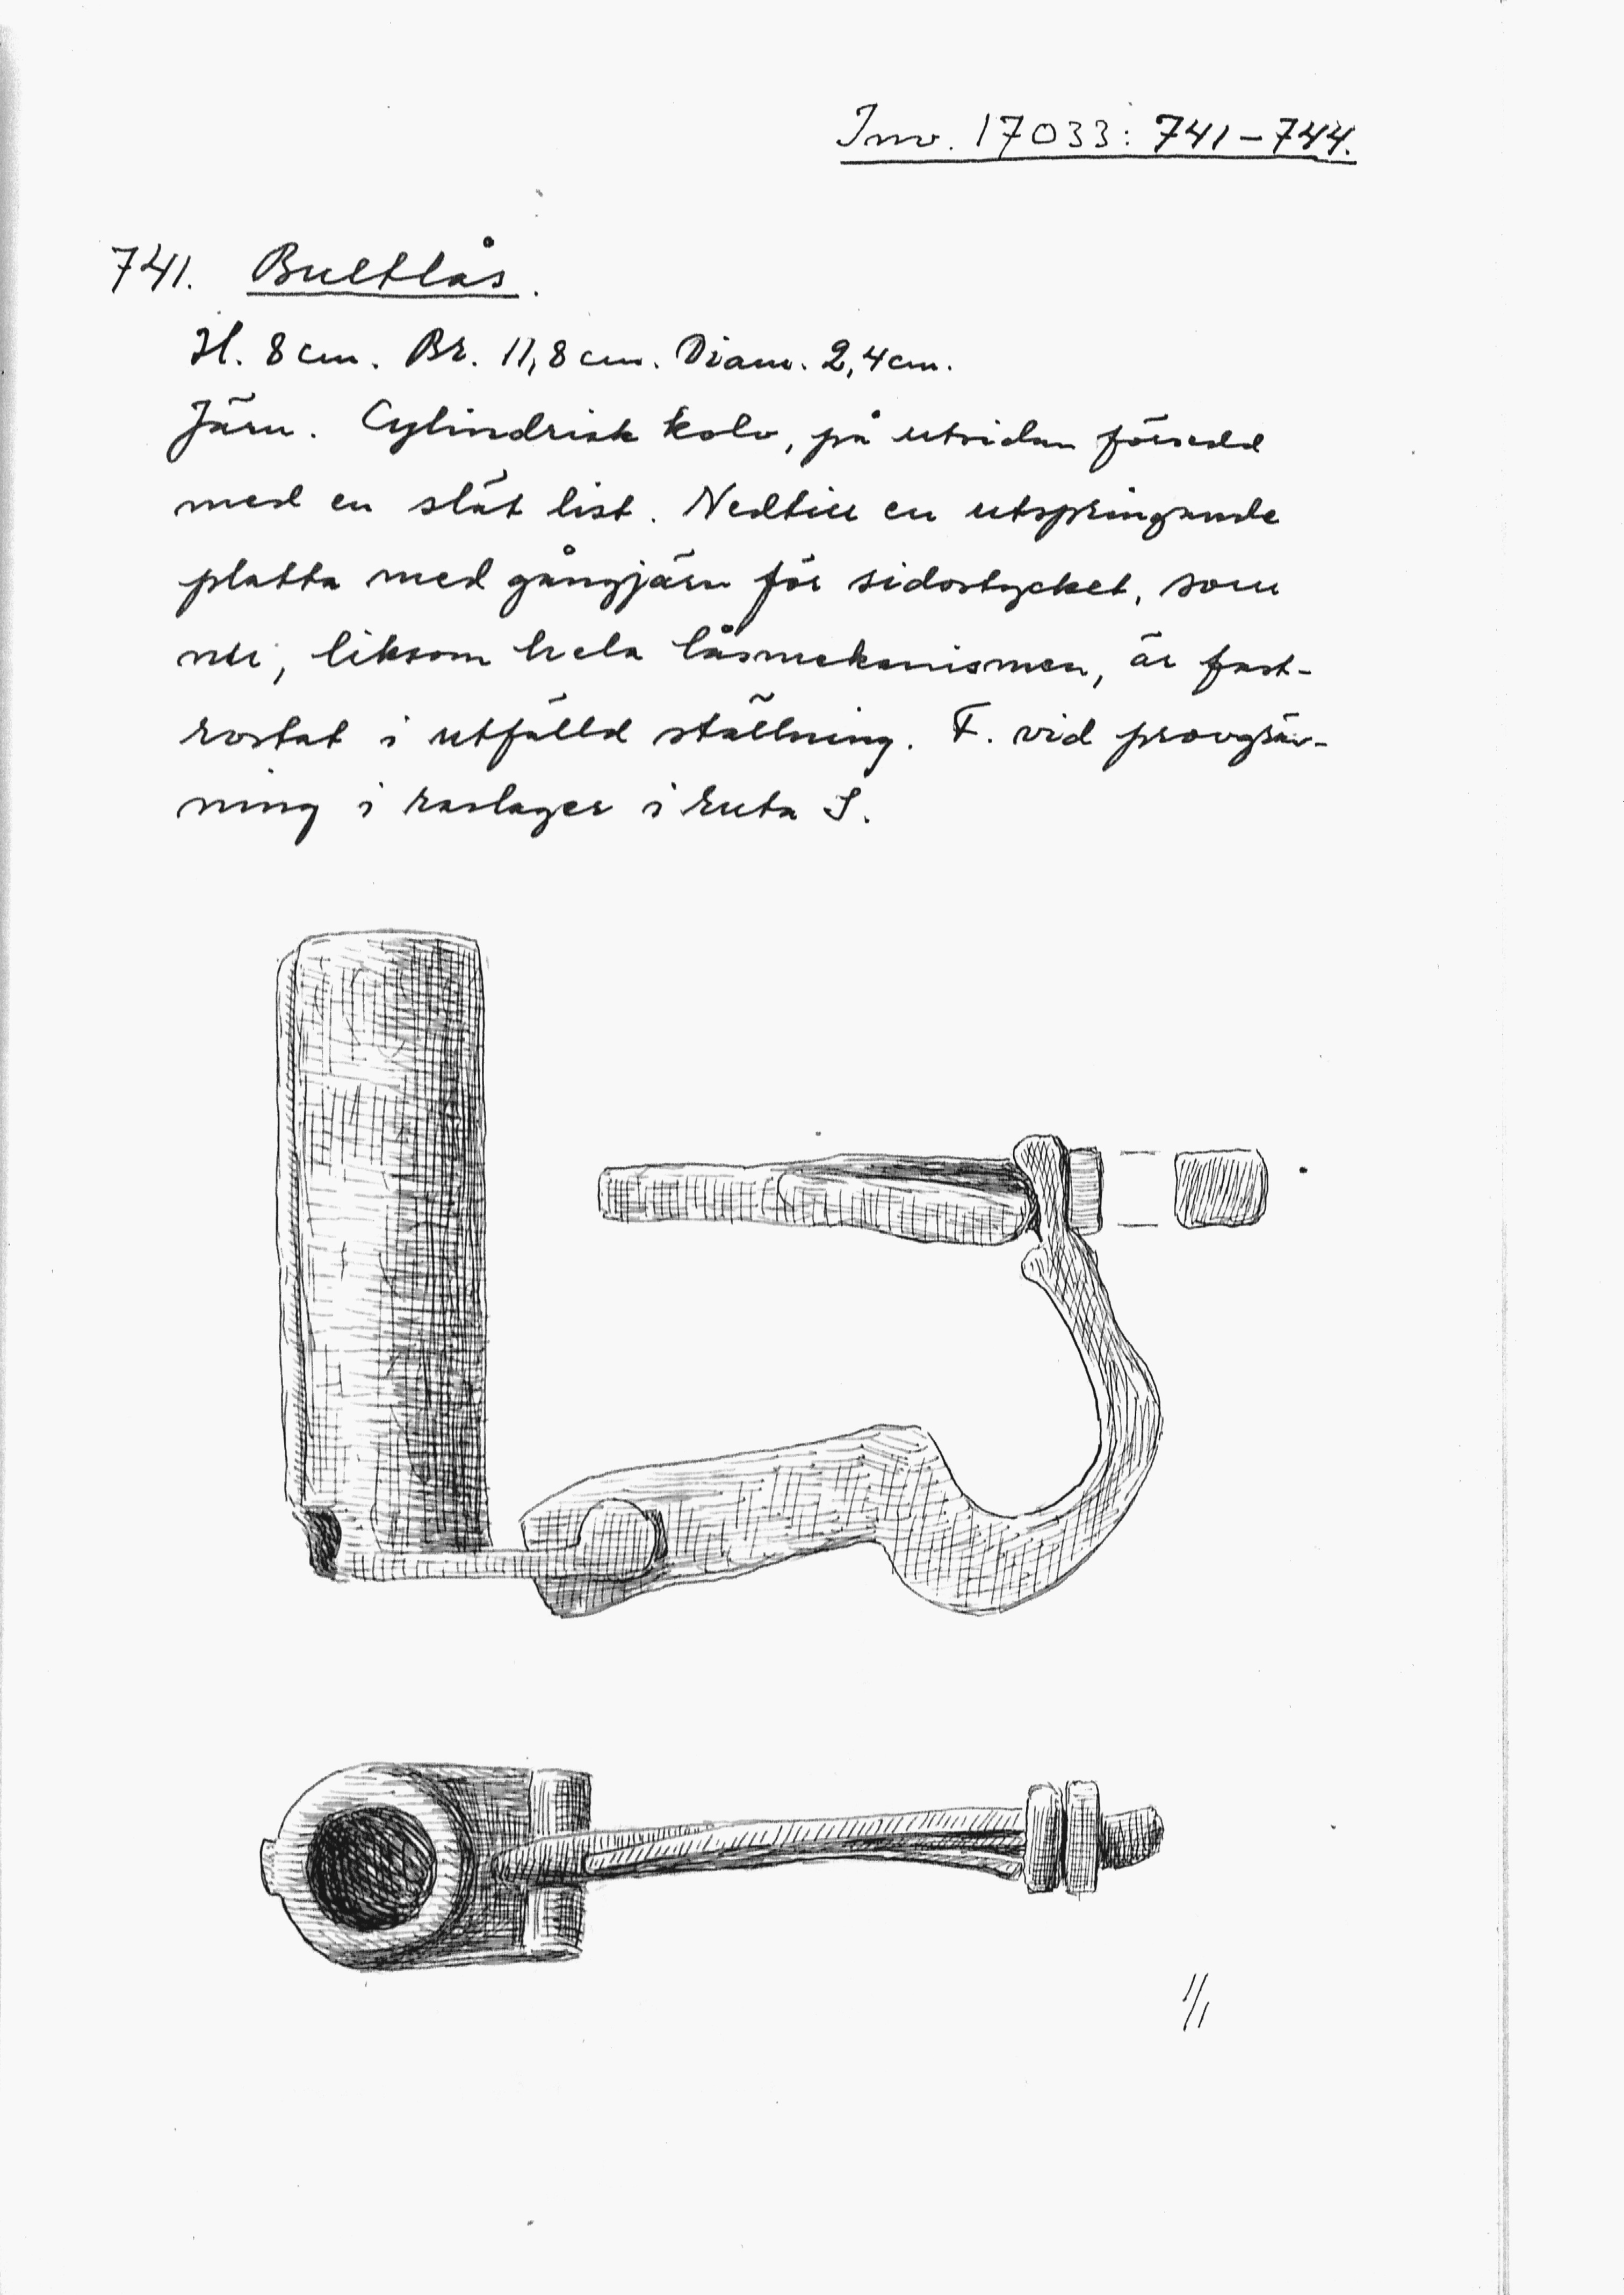 Inv. 17033: 741-744.
741. Bultlås.
H. 8 cm. Br. 11,8 cm. Diam. 2,4 cm.
Järn. Cylindrisk kolv, på utsidan försedd
med en slät list. Nedtill en utspringande
platta med gångjärn för sidostycket, som
nu, liksom hela låsmekanismen, är fast-
rostat i utfälld ställning. F. vid provgräv-
ning i raslager i ruta S.
1/1